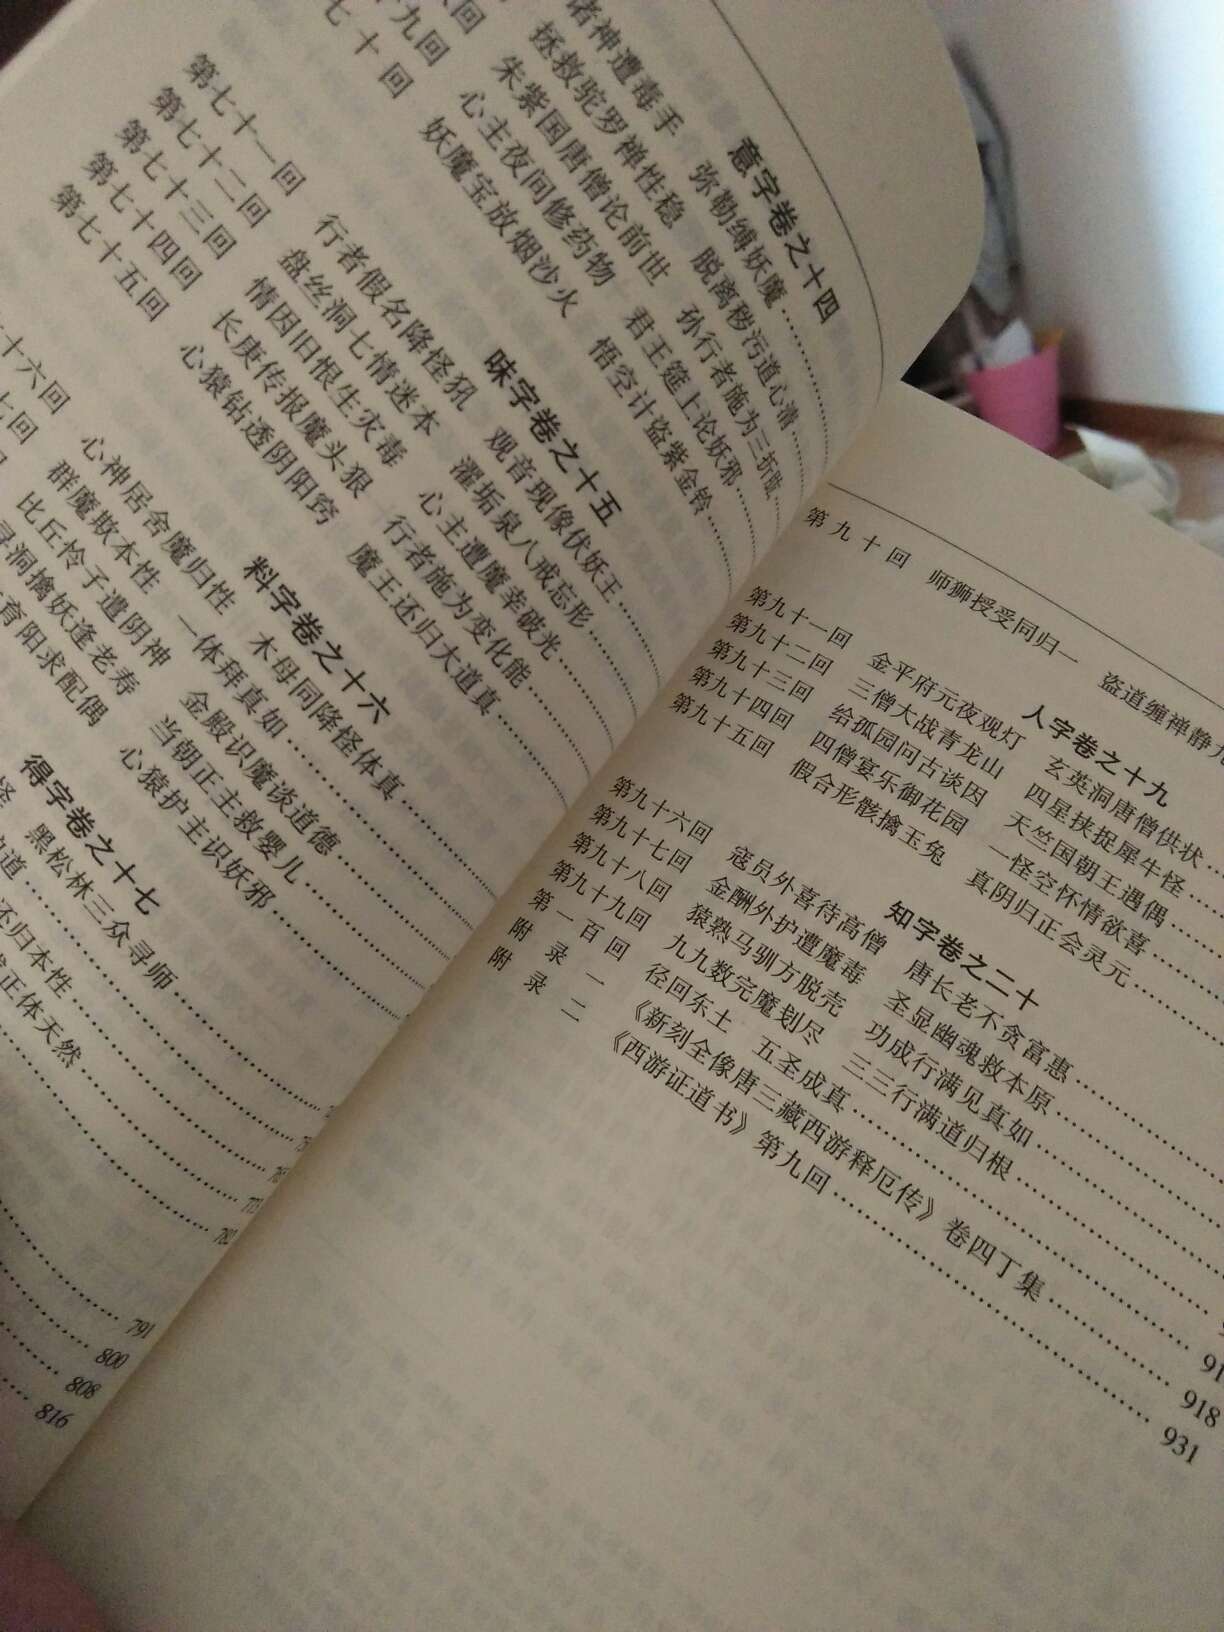 诸神遭毒手 弥勒缚妖魔
意字卷之十四
拯救驼罗禅性稳 脱离秽污道心清
九回 朱紫国唐僧论前世 孙行者施为三折肱
心主夜间修药物 君王筵上论妖邪
七十回 妖魔宝放烟沙火 悟空计盗紫金铃
味字卷之十五
第七十一回 行者假名降怪犼 观音现像伏妖王
第七十二回 盘丝洞七情迷本 濯垢泉八戒忘形
第七十三回 情因旧恨生灾毒 心主遭魔幸破光
第七十四回 长庚传报魔头狠 行者施为变化能
第七十五回 心猿钻透阴阳窍 魔王还归大道真
料字卷之十六
十六回 心神居舍魔归性 木母同降怪体真
七回 群魔欺本性 一体拜真如
比丘怜子遣阴神 金殿识魔谈道德
寻洞擒妖逢老寿 当朝正主救婴儿
育阳求配偶 心猿护主识妖邪
得字卷之十七
怪 黑松林三众寻师
还归本性
正体天然
791
800
808
816
第九十回 师狮授受同归一 盗道缠禅静九
人字卷之十九
第九十一回 金平府元夜观灯 玄英洞唐僧供状
第九十二回 三僧大战青龙山 四星挟捉犀牛怪
第九十三回 给孤园问古谈因 天竺国朝王遇偶
第九十四回 四僧宴乐御花园 一怪空怀情欲喜
第九十五回 假合形骸擒玉兔 真阴归正会灵元
知字卷之二十
第九十六回 寇员外喜待高僧 唐长老不贪富惠
第九十七回 金酬外护遭魔毒 圣显幽魂救本原
第九十八回 猿熟马驯方脱壳 功成行满见真如
第九十九回 九九数完魔刬尽 三三行满道归根
第一百回 径回东土 五圣成真
附录一 《新刻全像唐三藏西游释厄传》卷四丁集 918
附录二 《西游证道书》第九回 931